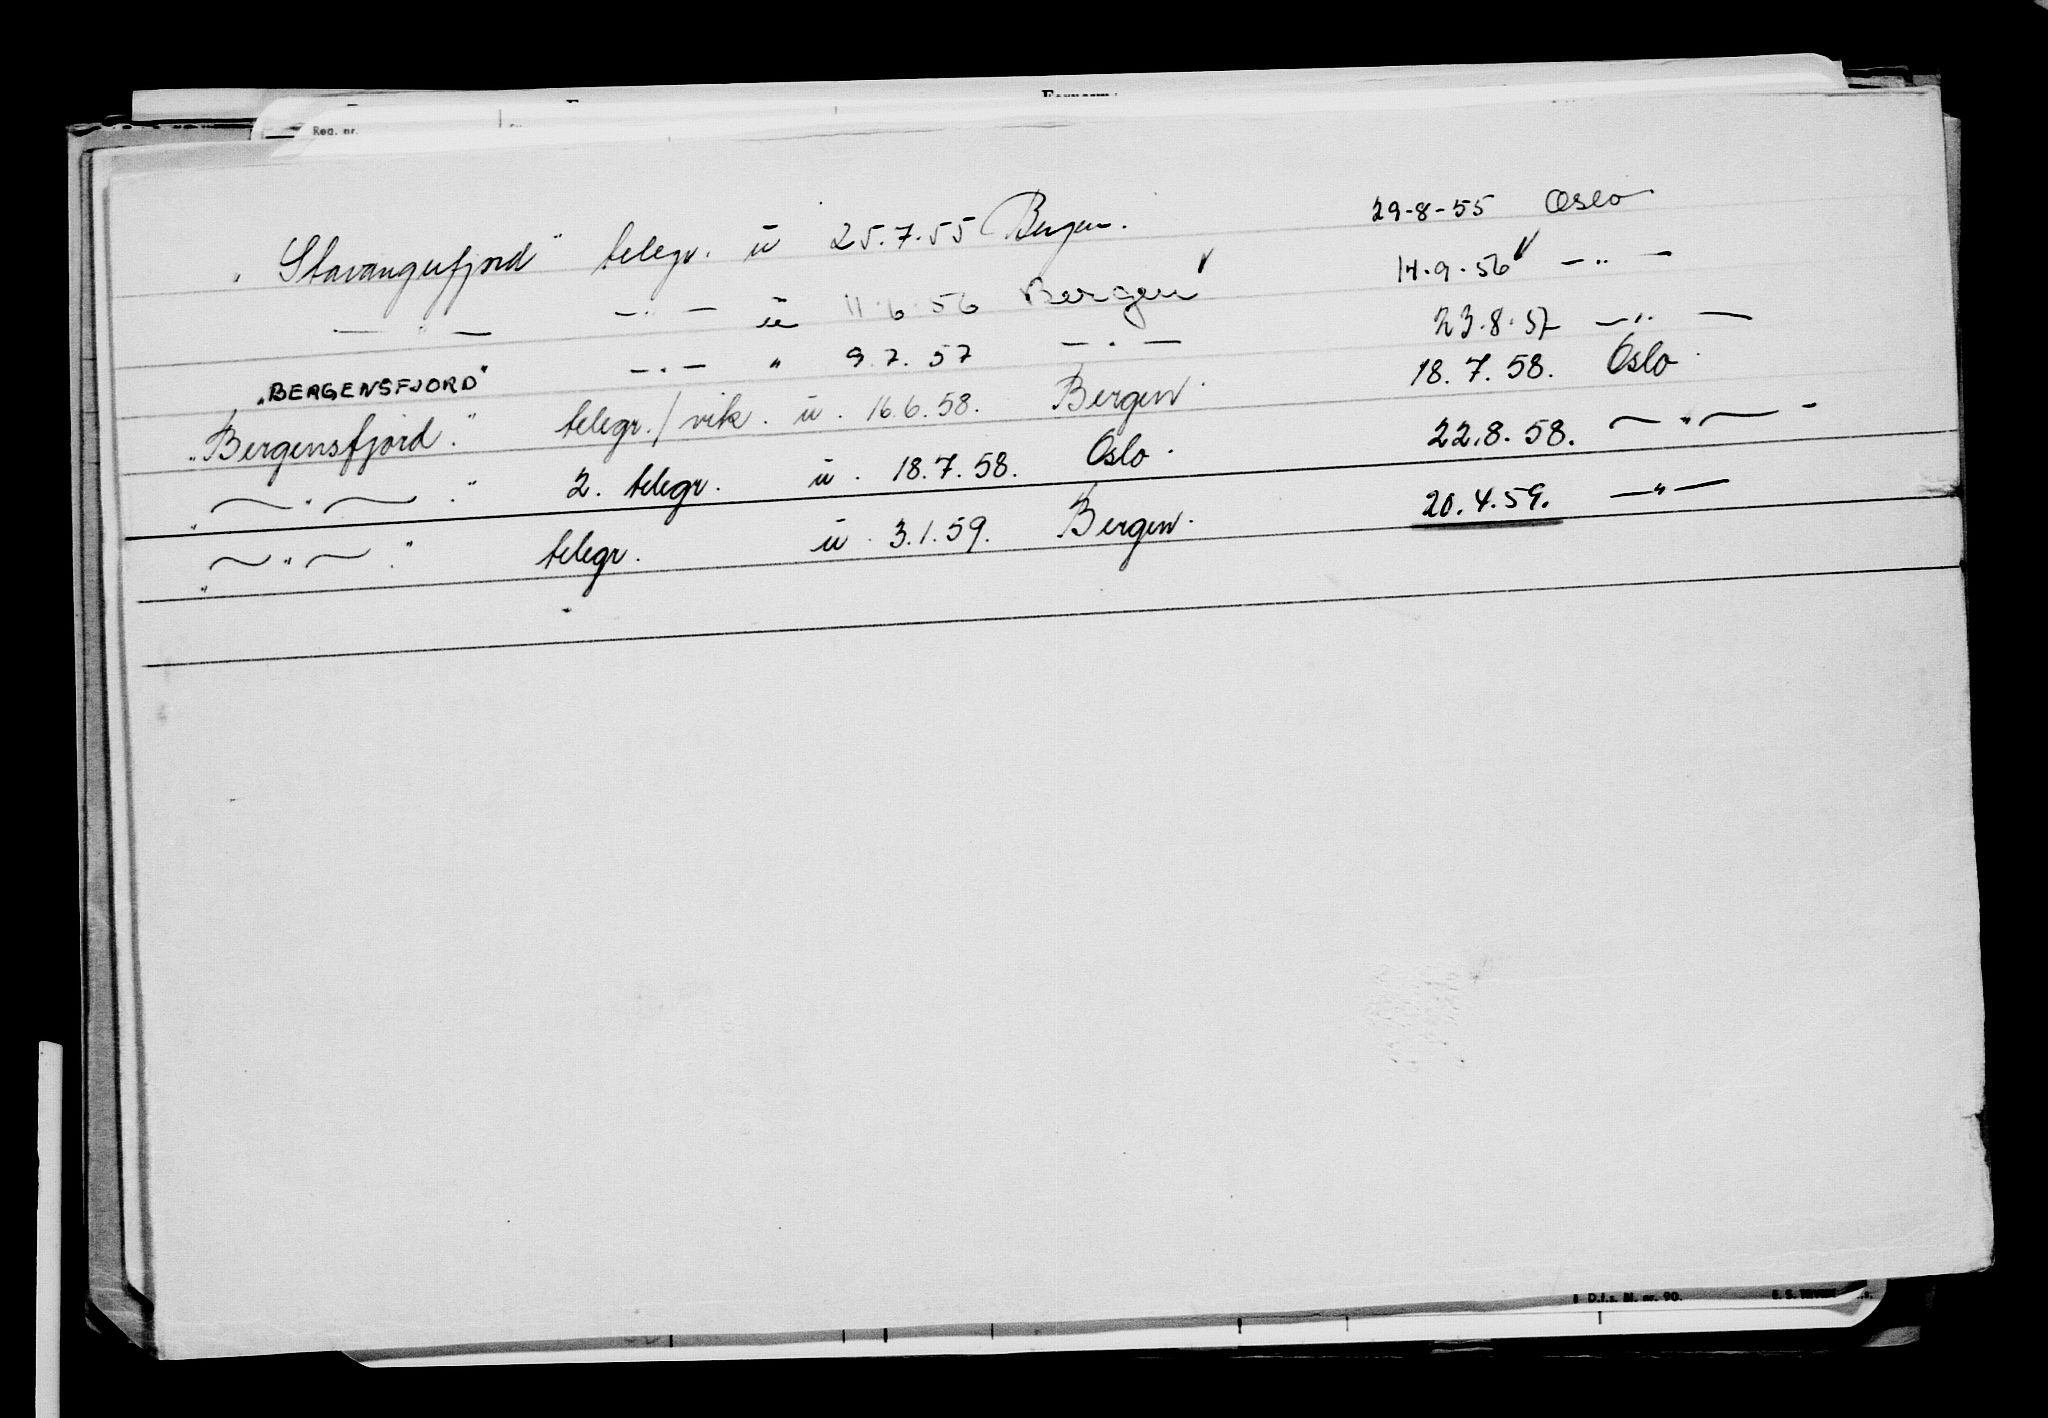 Reg. nr.
"Stavangerfjord" telegr. u 25.7.55 Bergen. 29-8-55 Oslo
— " — — " — u 11.6.56 Bergen 14.9.56 — " —
"BERGENSFJORD" — " — " 9.7.57 — " — 23.8.57 — " —
"Bergensfjord." telegr./vik. u. 16.6.58. Bergen. 18.7.58. Oslo.
" — " — ." 2. telegr. u. 18.7.58. Oslo. 22.8.58. — " — -
" — " — ." telegr. u. 3.1.59. Bergen. 20.4.59. — " —
D.f.s. Bl. nr. 90.